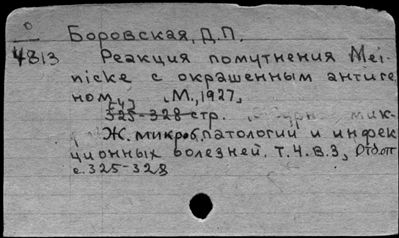 Боровская, Д.П.
4813 Реакция помутнения Mei-
nicke с окрашенным антиге
ном М., 1927,
325-328 стр. мик-
Ж. микроб. патологии и инфек
ционных болезней, т.4.в.3, Отд.отт
с.325-328